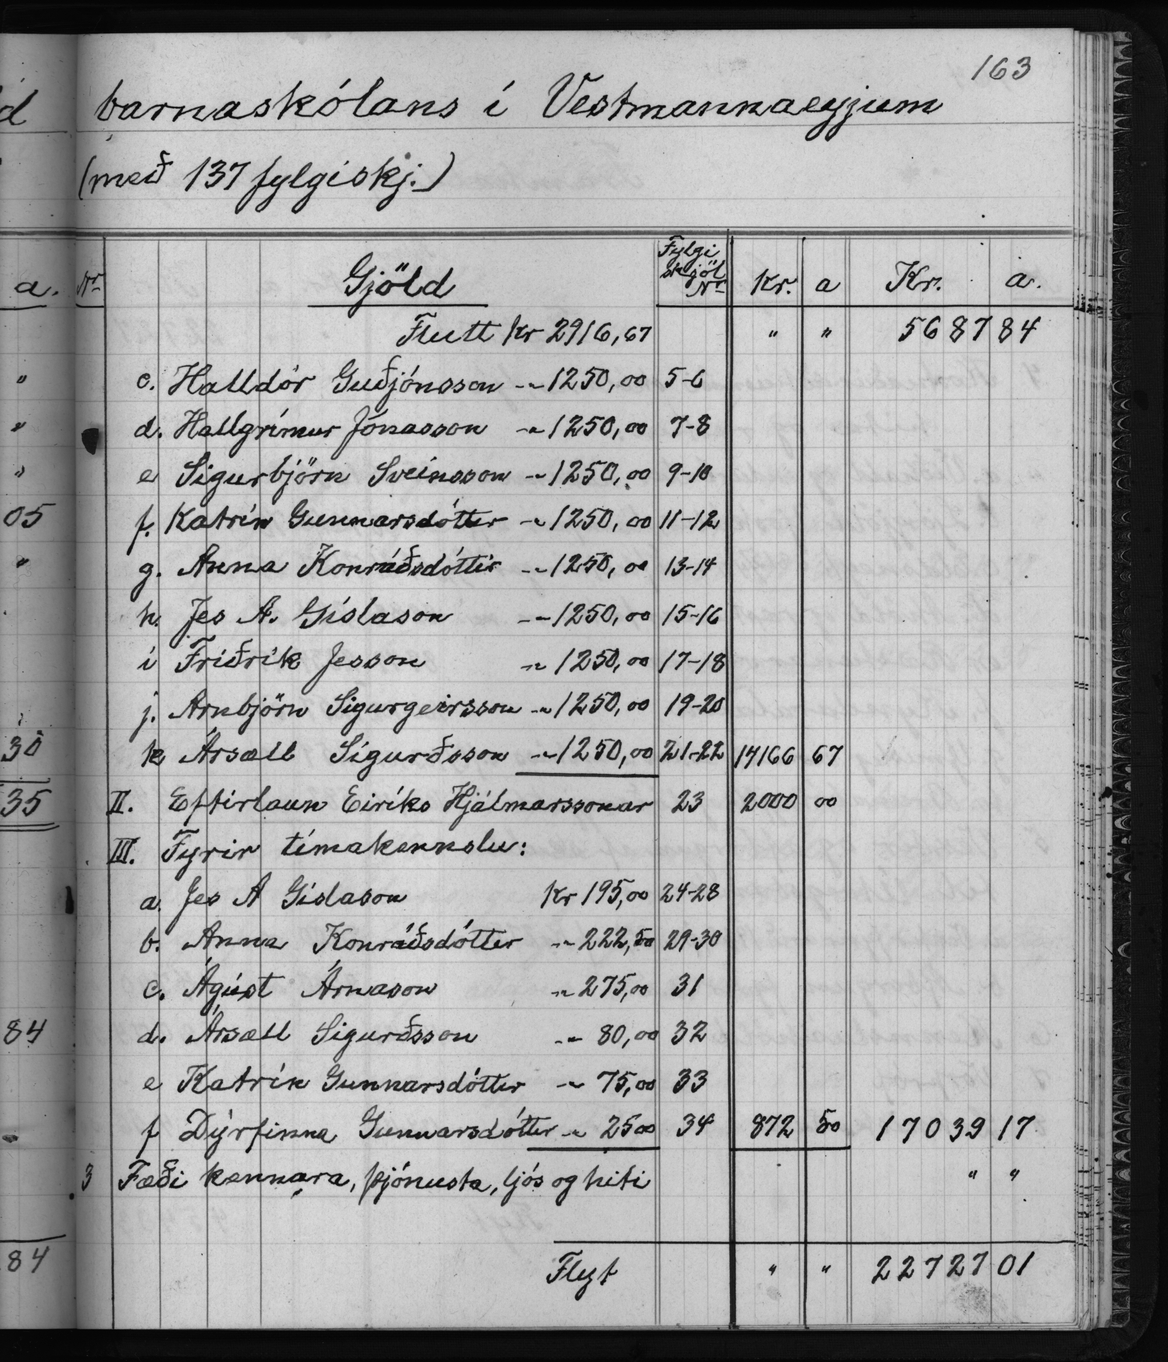 163
d barnaskólans í Vestmannaeyjum
(með 137 fylgiskj.)
a. Nr. Gjöld Fylgi skjöl Nr. Kr. a Kr. a.
Flutt Kr 2916,67 " " 5687 84
" c. Halldór Guðjónsson -"- 1250,00 5-6
" d. Hallgrímur Jónasson -"- 1250,00 7-8
" e Sigurbjörn Sveinsson -"- 1250,00 9-10
05 f. Katrín Gunnarsdóttir -"- 1250,00 11-12
" g. Anna Konráðsdóttir -"- 1250,00 13-14
h. Jes A. Gíslason -"- 1250,00 15-16
i Friðrik Jesson -"- 1250,00 17-18
j. Arnbjörn Sigurgeirsson -"- 1250,00 19-20
30 k Ársæll Sigurðsson -"- 1250,00 21-22 14166 67
35 II. Eftirlaun Eiríks Hjálmarssonar 23 2000 00
III. Fyrir tímakennslu:
a. Jes A Gíslason Kr 195,00 24-28
b. Anna Konráðsdóttir -"- 222,50 29-30
c. Ágúst Árnason -"- 275,00 31
84 d. Ársæll Sigurðsson -"- 80,00 32
e Katrín Gunnarsdóttir -"- 75,00 33
f Dýrfinna Gunnarsdóttir -"- 25 00 34 872 50 17039 17
3 Fæði kennara, þjónusta, ljós og hiti " "
84 Flyt " " 22727 01